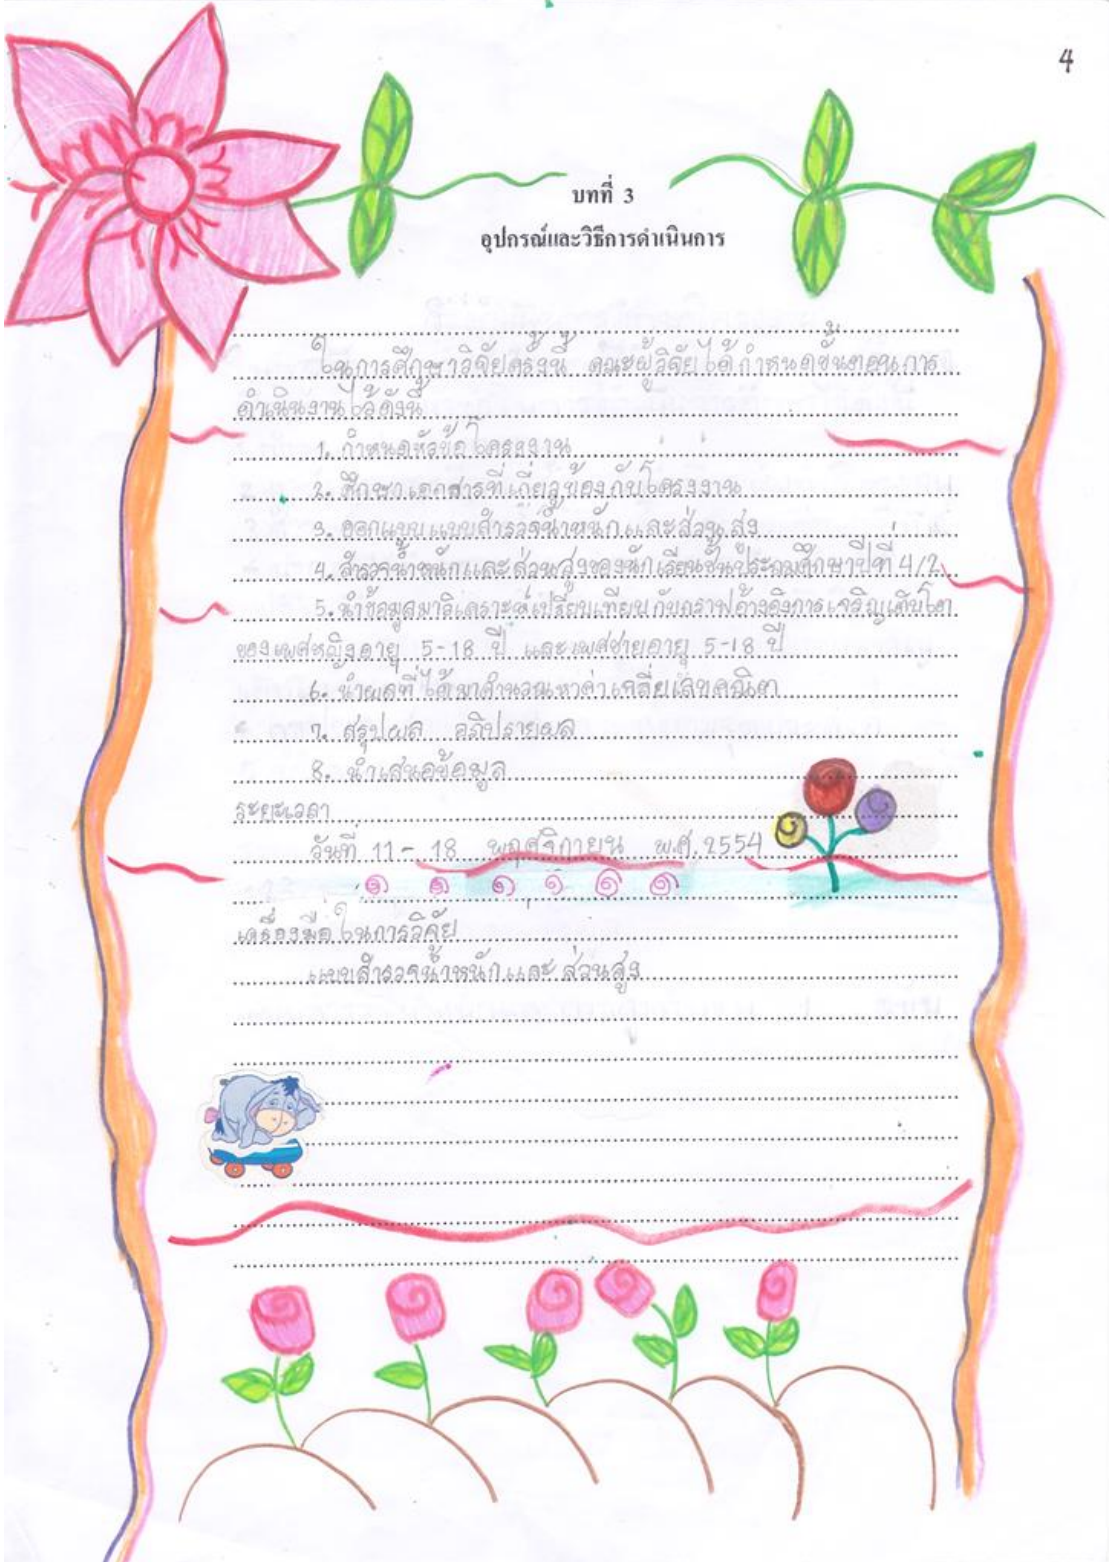 4
บทที่ 3
อุปกรณ์และวิธีการดำเนินการ
ในการศึกษาวิจัยครั้งนี้ คณะผู้วิจัยได้กำหนดขั้นตอนการ
ดำเนินงานไว้ดังนี้
1. กำหนดหัวข้อโครงงาน
2. ศึกษาเอกสารที่เกี่ยวข้องกับโครงงาน
3. ออกแบบแบบสำรวจน้ำหนักและส่วนสูง
4. สำรวจน้ำหนักและส่วนสูงของนักเรียนชั้นประถมศึกษาปีที่ 4/2
5. นำข้อมูลมาวิเคราะห์เปรียบเทียบกับกราฟอ้างอิงการเจริญเติบโต
ของเพศหญิงอายุ 5-18 ปี และเพศชายอายุ 5-18 ปี
6. นำผลที่ได้มาคำนวณหาค่าเฉลี่ยเลขคณิต
7. สรุปผล อภิปรายผล
8. นำเสนอข้อมูล
ระยะเวลา
วันที่ 11 - 18 พฤศจิกายน พ.ศ. 2554
เครื่องมือในการวิจัย
แบบสำรวจน้ำหนักและส่วนสูง